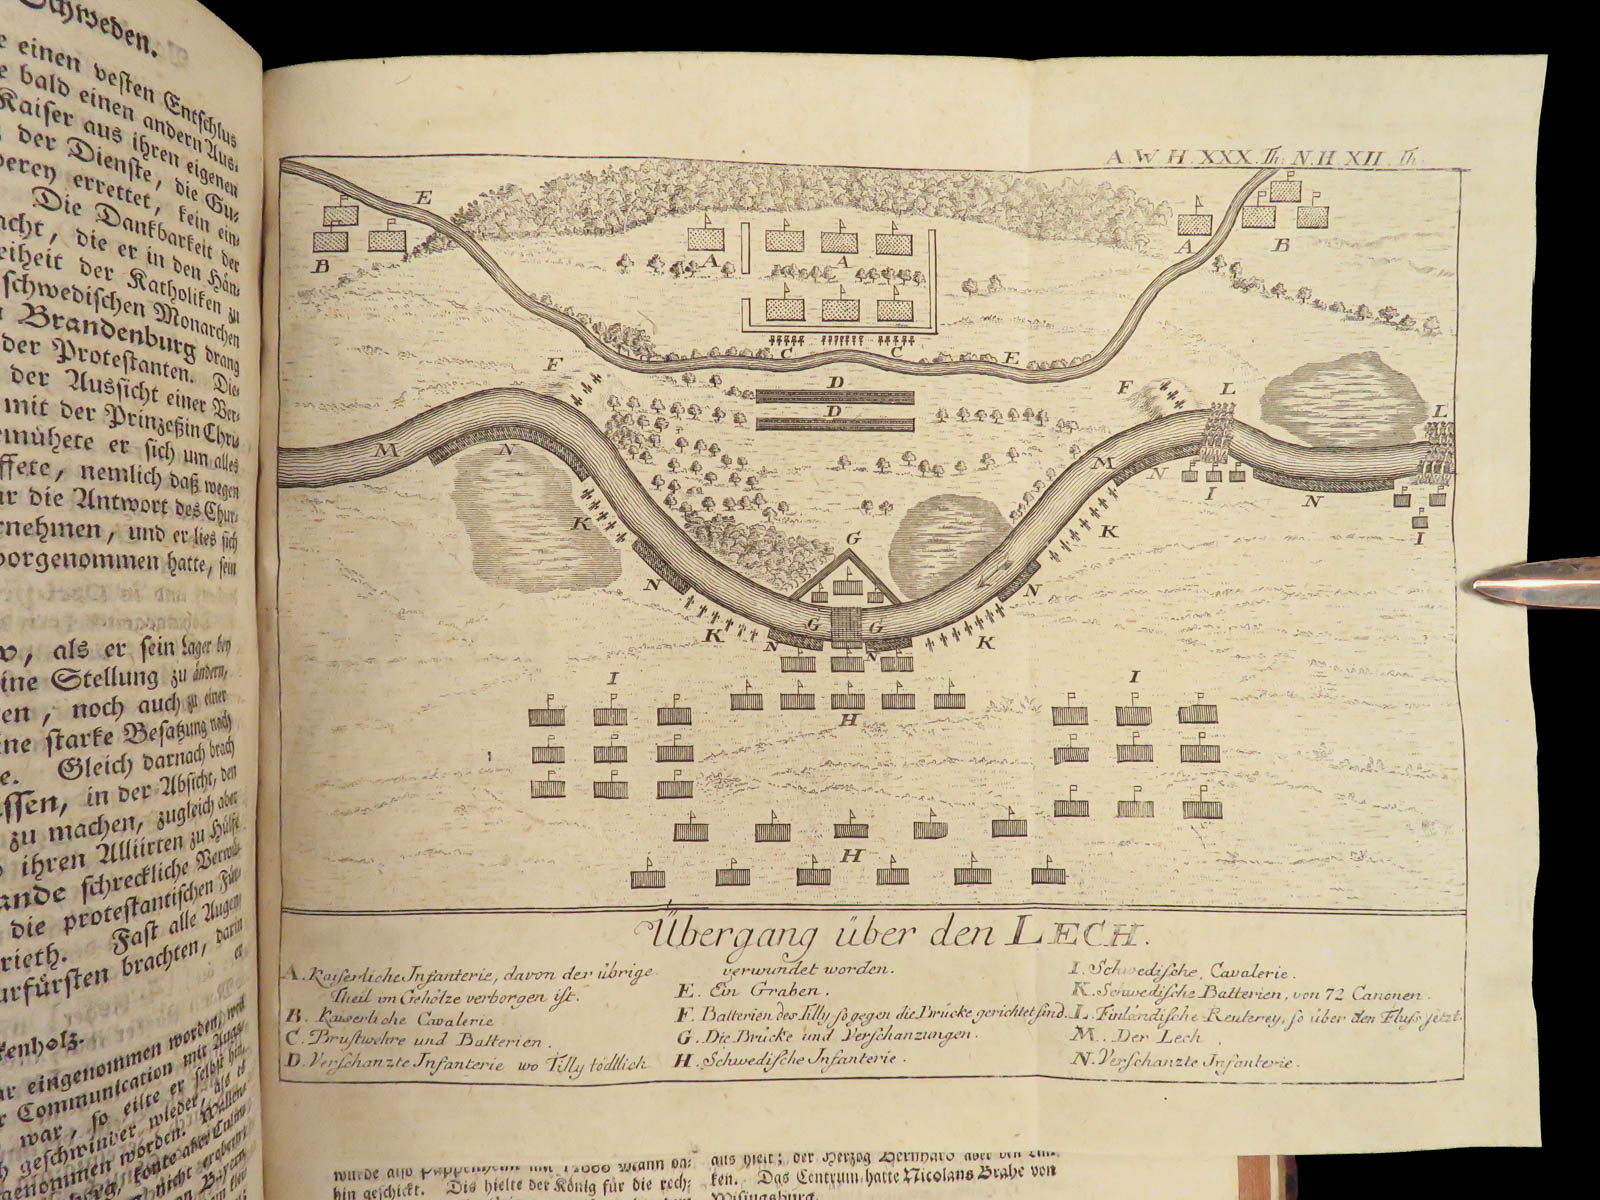 Schweden.
einen vesten Entschlus
bald einen andern Aus-
Kaiser aus ihren eigenen
der Dienste, die Gu-
errettet, kein ein-
Die Dankbarkeit der
die er in den Hän-
der Katholiken zu
schwedischen Monarchen
Brandenburg drang
der Protestanten. Die-
der Aussicht einer Ver-
mit der Prinzeßin Chri
er sich um alles
nemlich daß wegen
die Antwort des Chur-
und er lies sich
vorgenommen hatte, sein
als er sein Lager bey
Stellung zu ändern,
noch auch zu einer
starke Besatzung nach
Gleich darnach brach
in der Absicht, den
zu machen, zugleich aber
ihren Alliirten zu Hülfe
schreckliche Verwü-
die protestantischen Für-
Fast alle Augen,
brachten, darin
er
eingenommen worden, weil
Communication mit Augs-
war, so eilte er selbst hin,
geschwinder wieder, als es
worden.
A W H. XXX. Th. N. H XII. Th.
E
B
A
A
A
B
C
C
E
F
D
D
F
L
L
M
N
M
N
I
N
I
K
K
G
N
N
G
G
K
K
N
N
I
I
H
H
Übergang über den LECH.
A. Kaiserliche Infanterie, davon der übrige
Theil vm Gehölze verborgen ist.
B. Kaiserliche Cavalerie
C. Brustwehre und Batterien.
D. Verschanzte Infanterie wo Tilly tödtlich
verwundet worden.
E. Ein Graben.
F. Batterien des Tilly so gegen die Brücke gerichtet sind.
G. Die Brücke und Verschanzungen.
H. Schwedische Infanterie.
I. Schwedische Cavalerie.
K. Schwedische Batterien, von 72 Canonen.
L. Finländische Reuterey, so über den Fluss sezt.
M. Der Lech.
N. Verschanzte Infanterie.
wurde also Pappenheim mit Mann da-
hin geschickt. Dis hielte der König für die rech-
aus hielt; der Herzog Bernhard aber den Lin-
ken. Das Centrum hatte Nicolaus Brahe von
Wisingsburg.